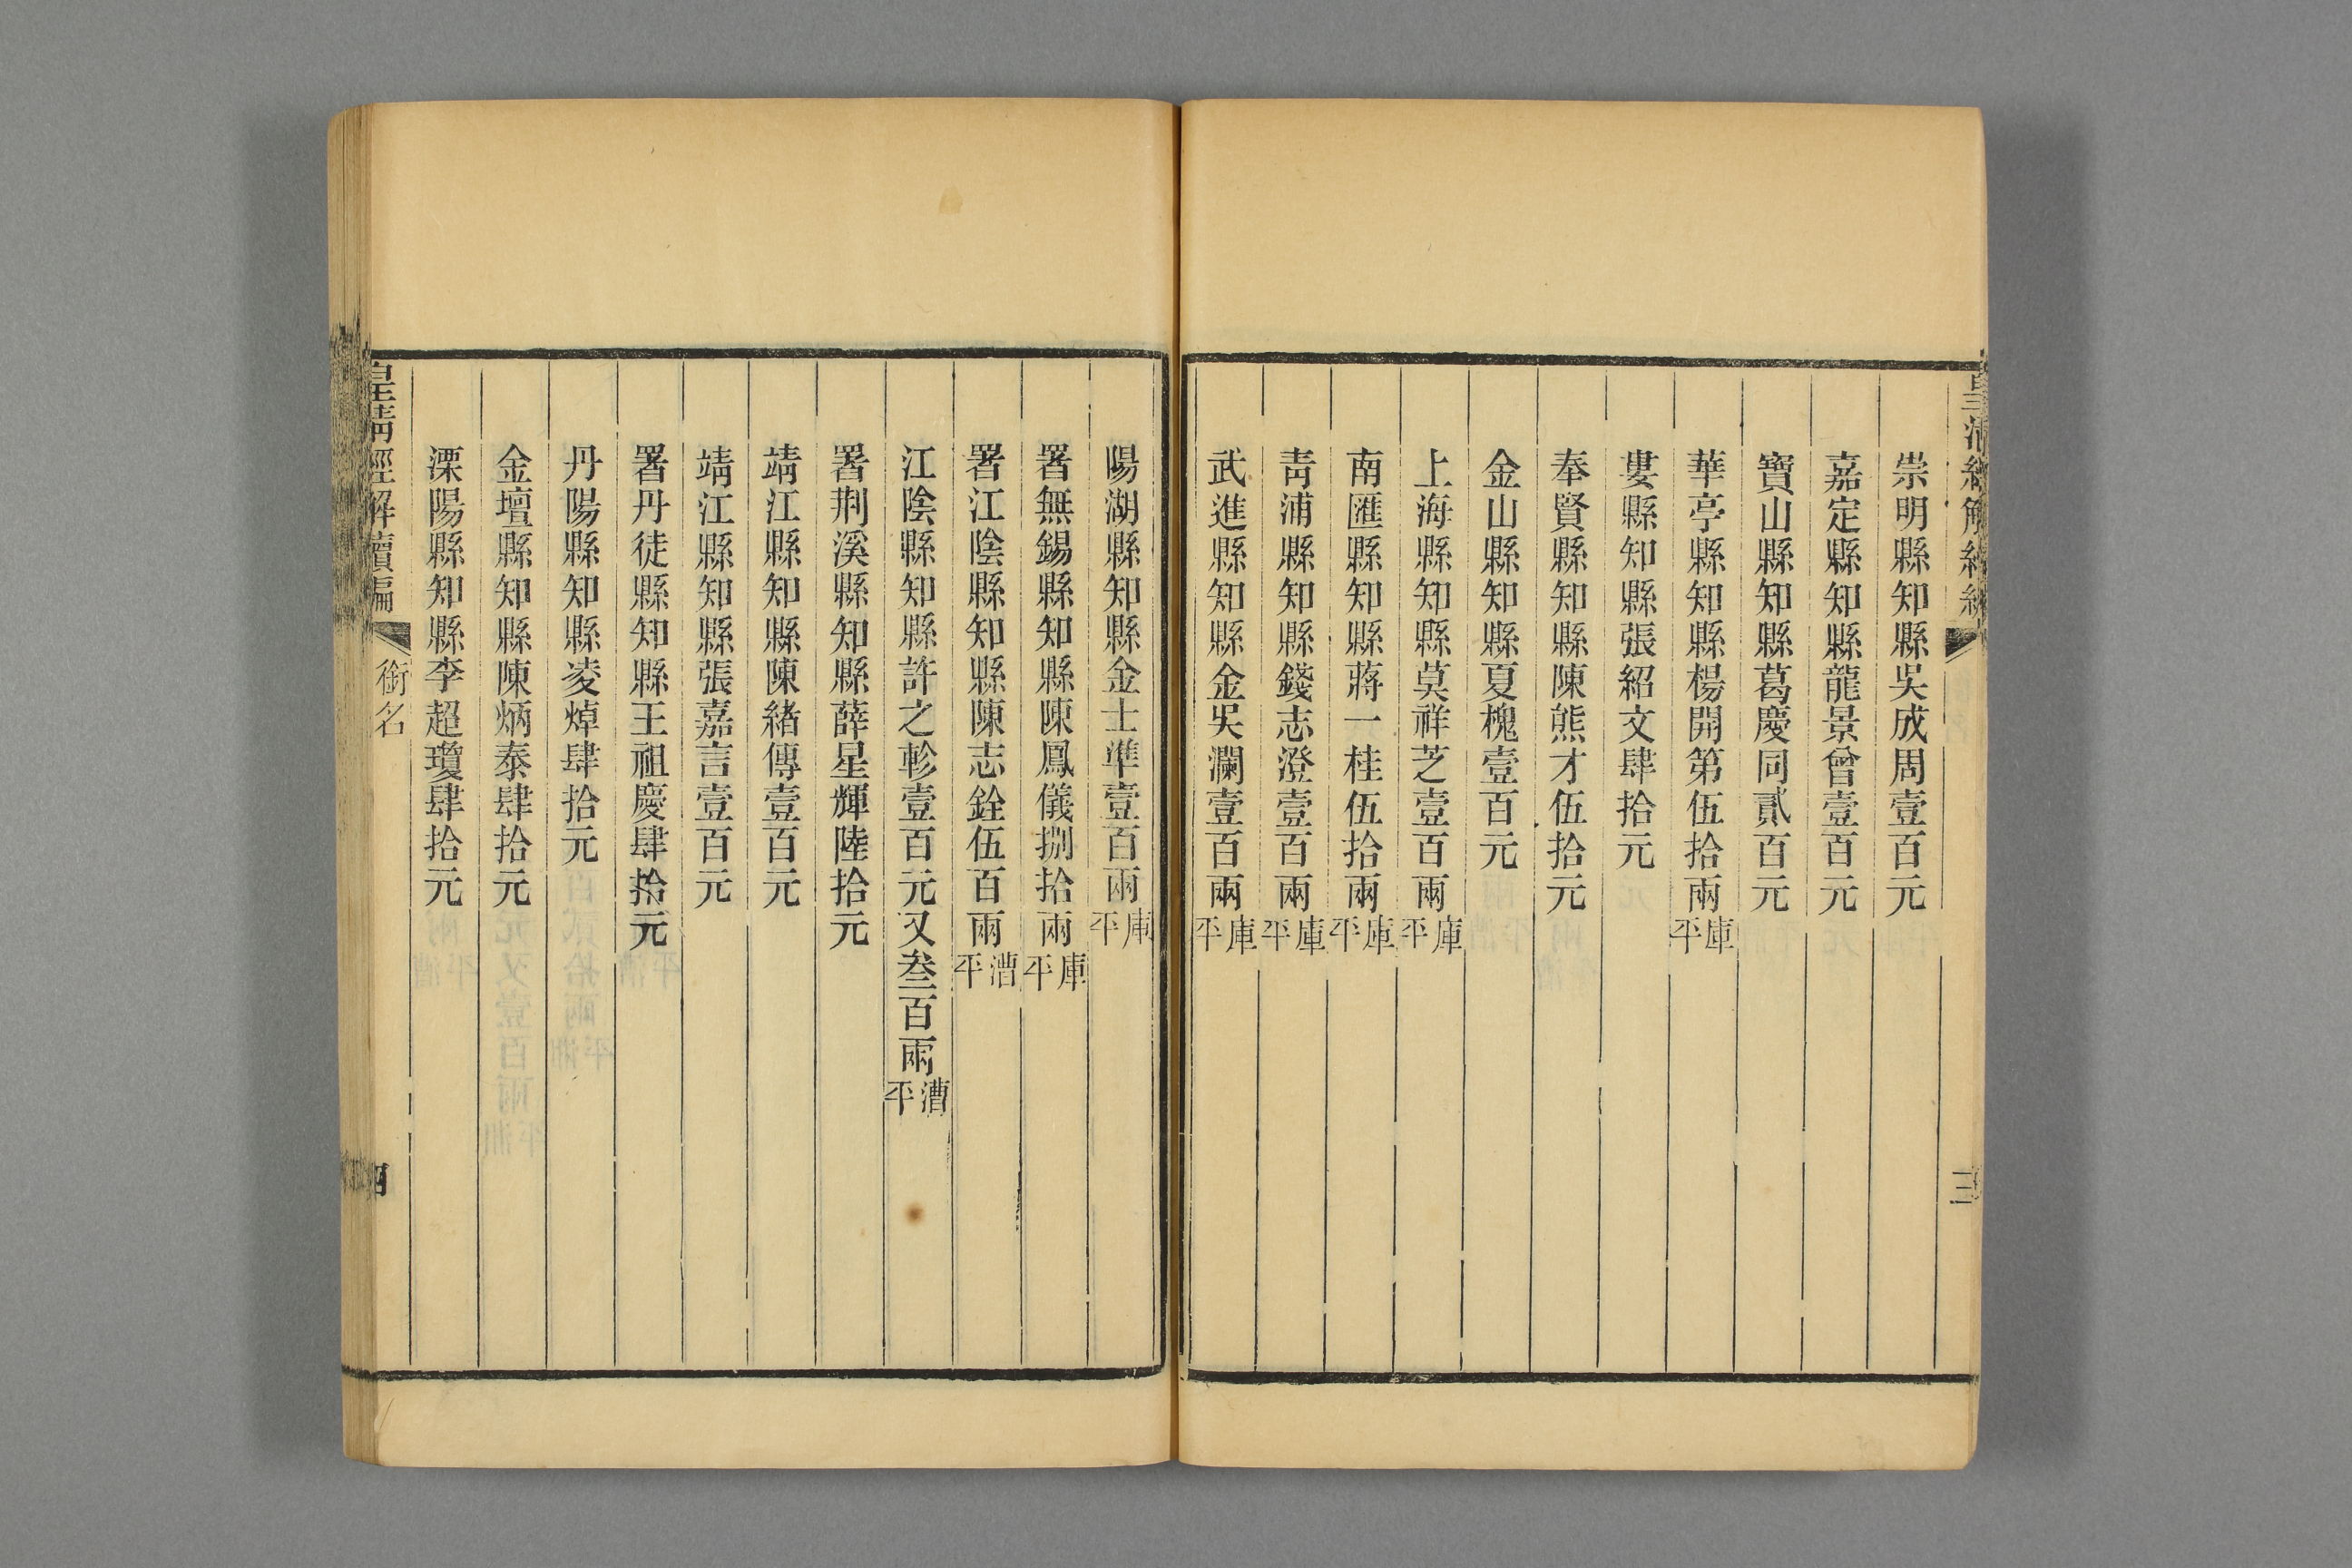 崇明縣知縣吳成周壹百元
嘉定縣知縣龍景曾壹百元
寶山縣知縣葛慶同貳百元
華亭縣知縣楊開第伍拾兩庫平
婁縣知縣張紹文肆拾元
奉賢縣知縣陳熊才伍拾元
金山縣知縣夏槐壹百元
上海縣知縣莫祥芝壹百兩庫平
南匯縣知縣蔣一桂伍拾兩庫平
靑浦縣知縣錢志澄壹百兩庫平
武進縣知縣金吳瀾壹百兩庫平
陽湖縣知縣金士準壹百兩庫平
署無錫縣知縣陳鳳儀捌拾兩庫平
署江陰縣知縣陳志銓伍百兩漕平
江陰縣知縣許之軫壹百元又叁百兩漕平
署荆溪縣知縣薛星輝陸拾元
靖江縣知縣陳緒傳壹百元
靖江縣知縣張嘉言壹百元
署丹徒縣知縣王祖慶肆拾元
丹陽縣知縣凌焯肆拾元
金壇縣知縣陳炳泰肆拾元
溧陽縣知縣李超瓊肆拾元
皇淸經解續編
銜名
四